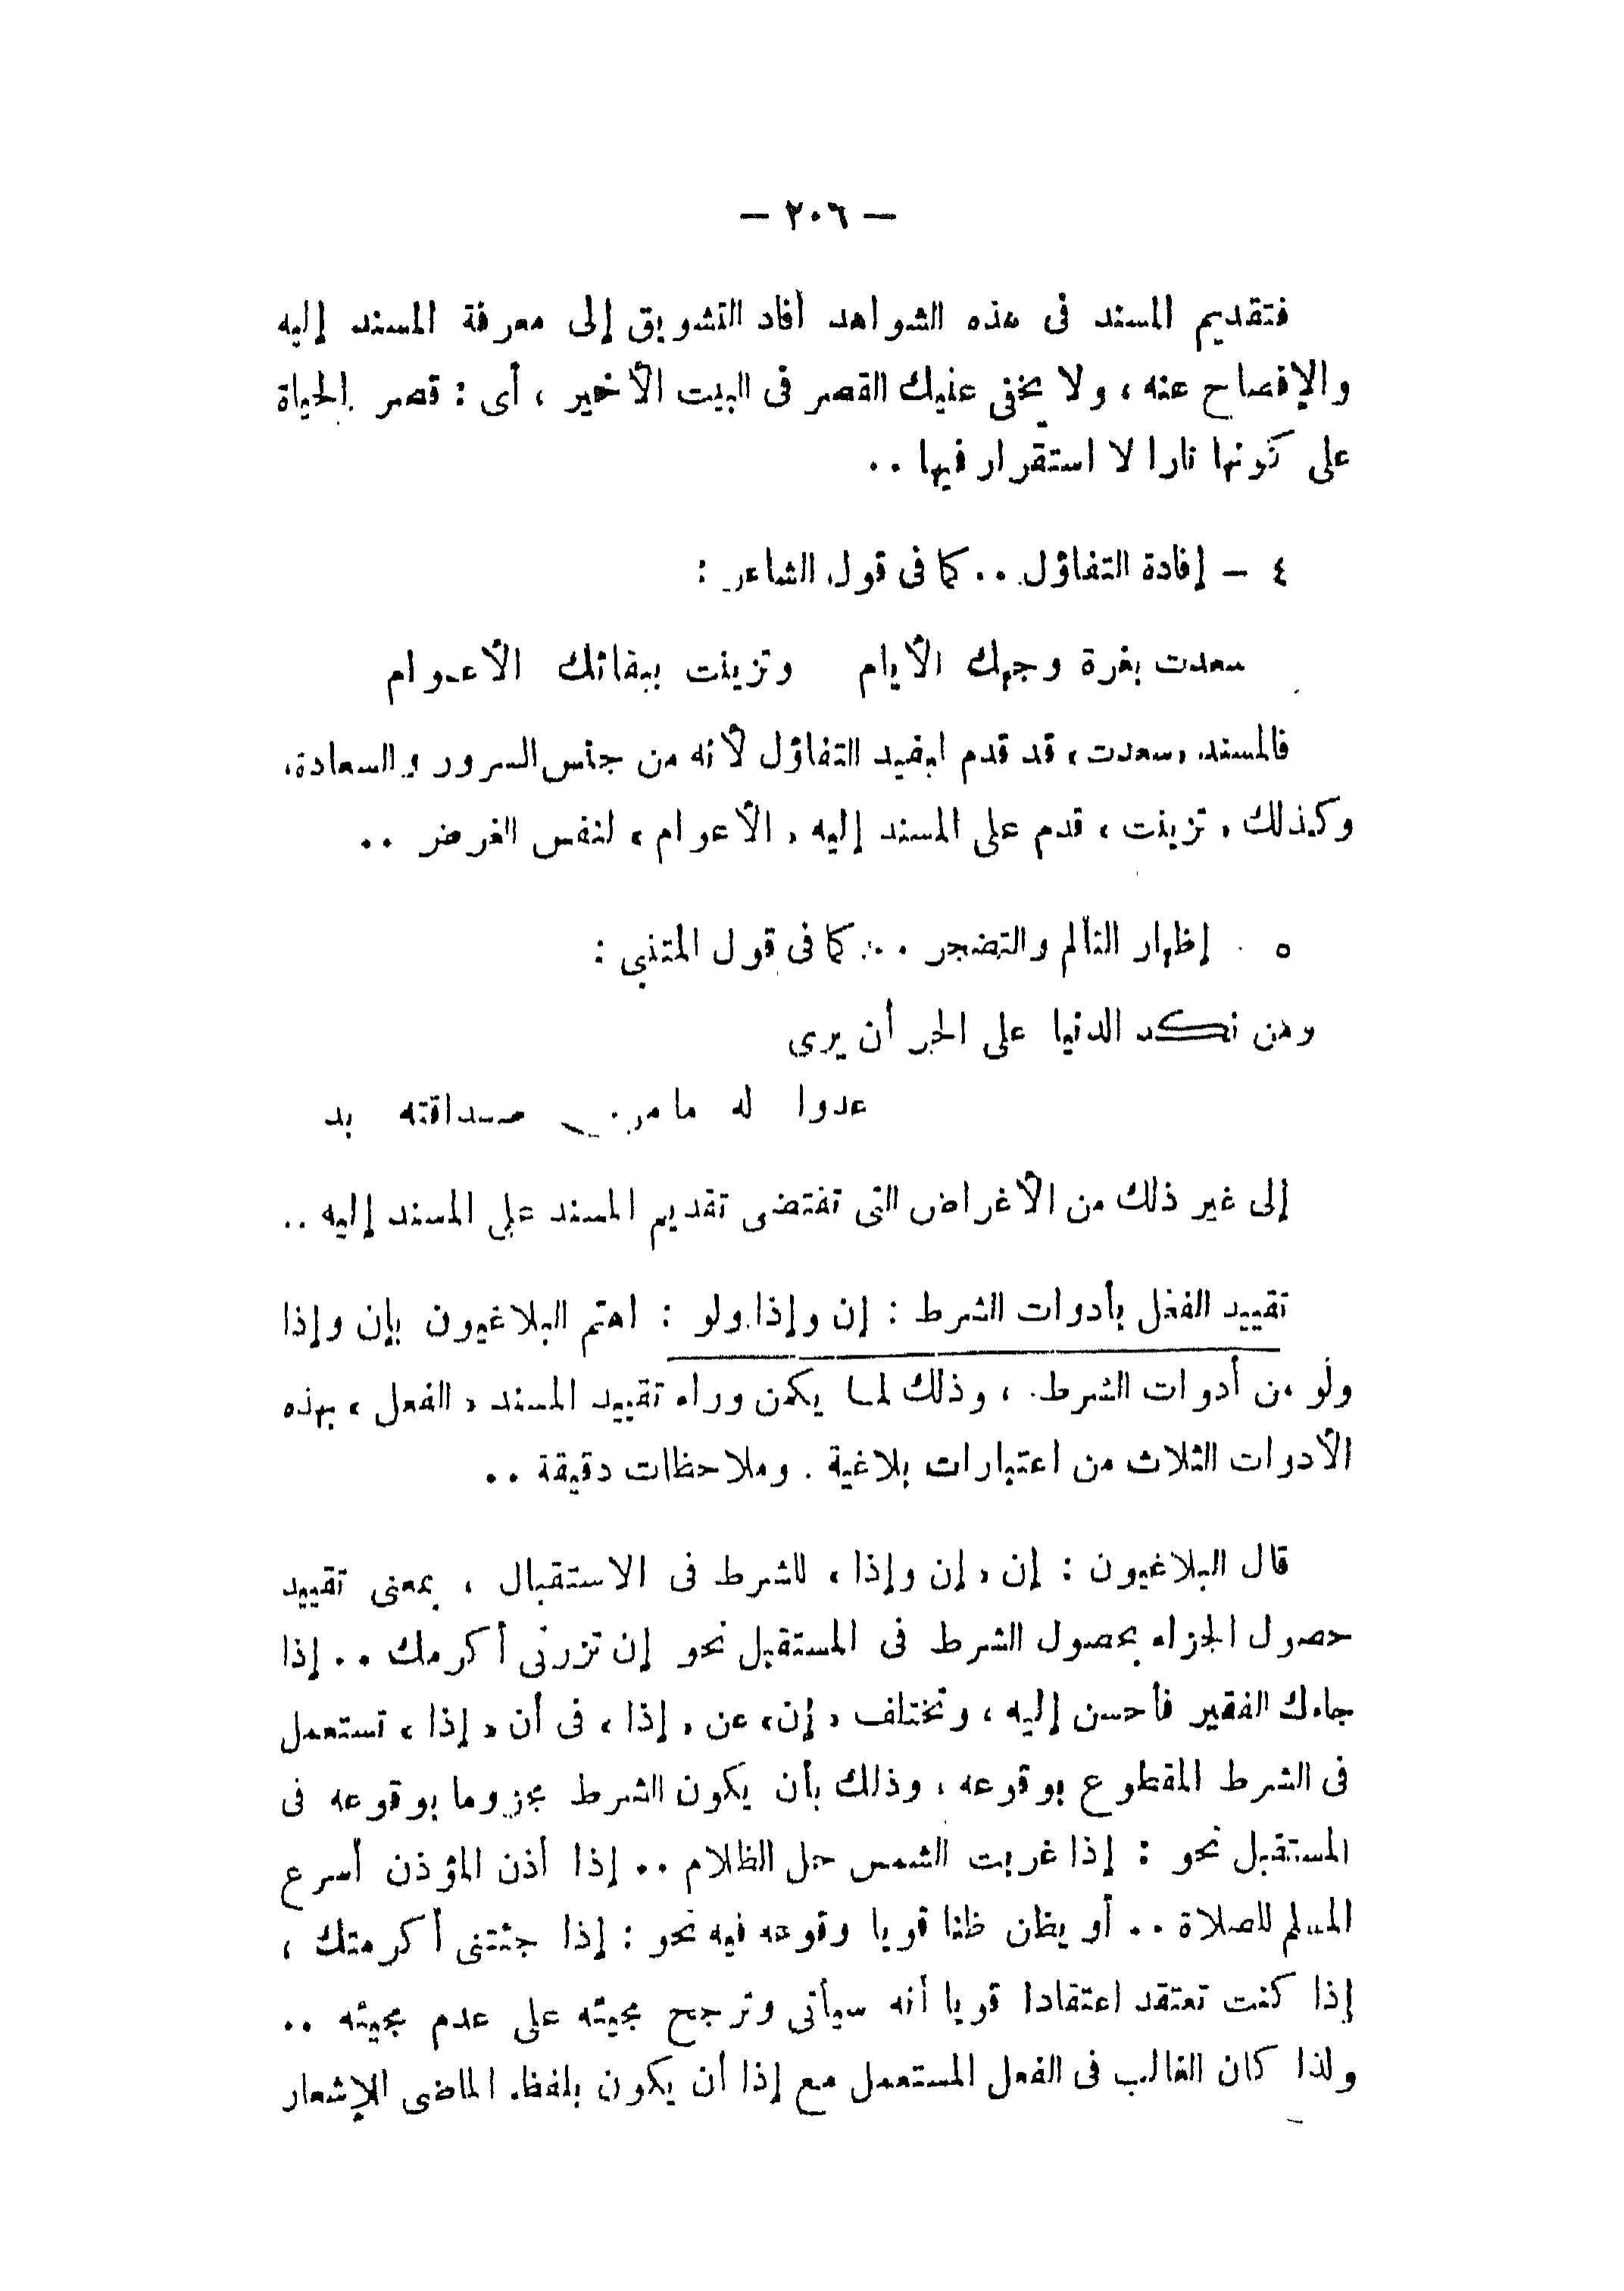 — ٢٠٦ —
فتقديم المسند فى هذه الشواهد أفاد التشويق إلى معرفة المسند إليه
والإفصاح عنه ، ولا يخفى عليك القصر فى البيت الأخير ، أى : قصر الحياة
على كونها نارا لا استقرار فيها ..
٤ — إفادة التفاؤل .. كما فى قول الشاعر :
سعدت بغرة وجهك الأيام وتزينت ببقائك الأعوام
فالمسند «سعدت» قد قدم ليفيد التفاؤل لأنه من جنس السرور والسعادة،
وكذلك «تزينت» قدم على المسند إليه «الأعوام» لنفس الغرض ..
٥ - إظهار التألم والتضجر .. كما فى قول المتنبى :
ومن نكد الدنيا على الحر أن يرى
عدوا له ما من صداقته بد
إلى غير ذلك من الأغراض التى تقتضى تقديم المسند على المسند إليه ..
تقييد الفعل بأدوات الشرط : إن وإذا ولو : اهتم البلاغيون بإن وإذا
ولو من أدوات الشرط ، وذلك لما يكمن وراء تقييد المسند «الفعل» بهذه
الأدوات الثلاث من اعتبارات بلاغية . وملاحظات دقيقة ..
قال البلاغيون : إن «إن وإذا» للشرط فى الاستقبال ، بمعنى تقييد
حصول الجزاء بحصول الشرط فى المستقبل نحو إن تزرنى أكرمك .. إذا
جاءك الفقير فأحسن إليه ، وتختلف «إن» عن «إذا» فى أن «إذا» تستعمل
فى الشرط المقطوع بوقوعه ، وذلك بأن يكون الشرط مجزوما بوقوعه فى
المستقبل نحو : إذا غربت الشمس حل الظلام .. إذا أذن المؤذن أسرع
المسلم للصلاة .. أو يظن ظنا قويا وقوعه فيه نحو : إذا جئتنى أكرمتك ،
إذا كنت تعتقد اعتقادا قويا أنه سيأتى وترجح مجيئه على عدم مجيئه ..
ولذا كان الغالب فى الفعل المستعمل مع إذا أن يكون بلفظ الماضى للإشعار